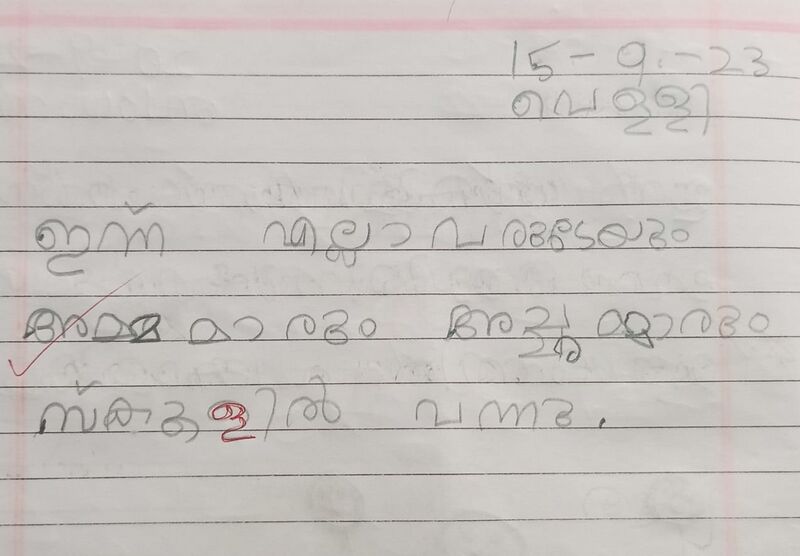 15-9.-23
വെള്ളി
ഇന്ന് എല്ലാവരുടേയും
അമ്മമാരും അച്ഛന്മാരും
സ്കൂളിൽ വന്നു.